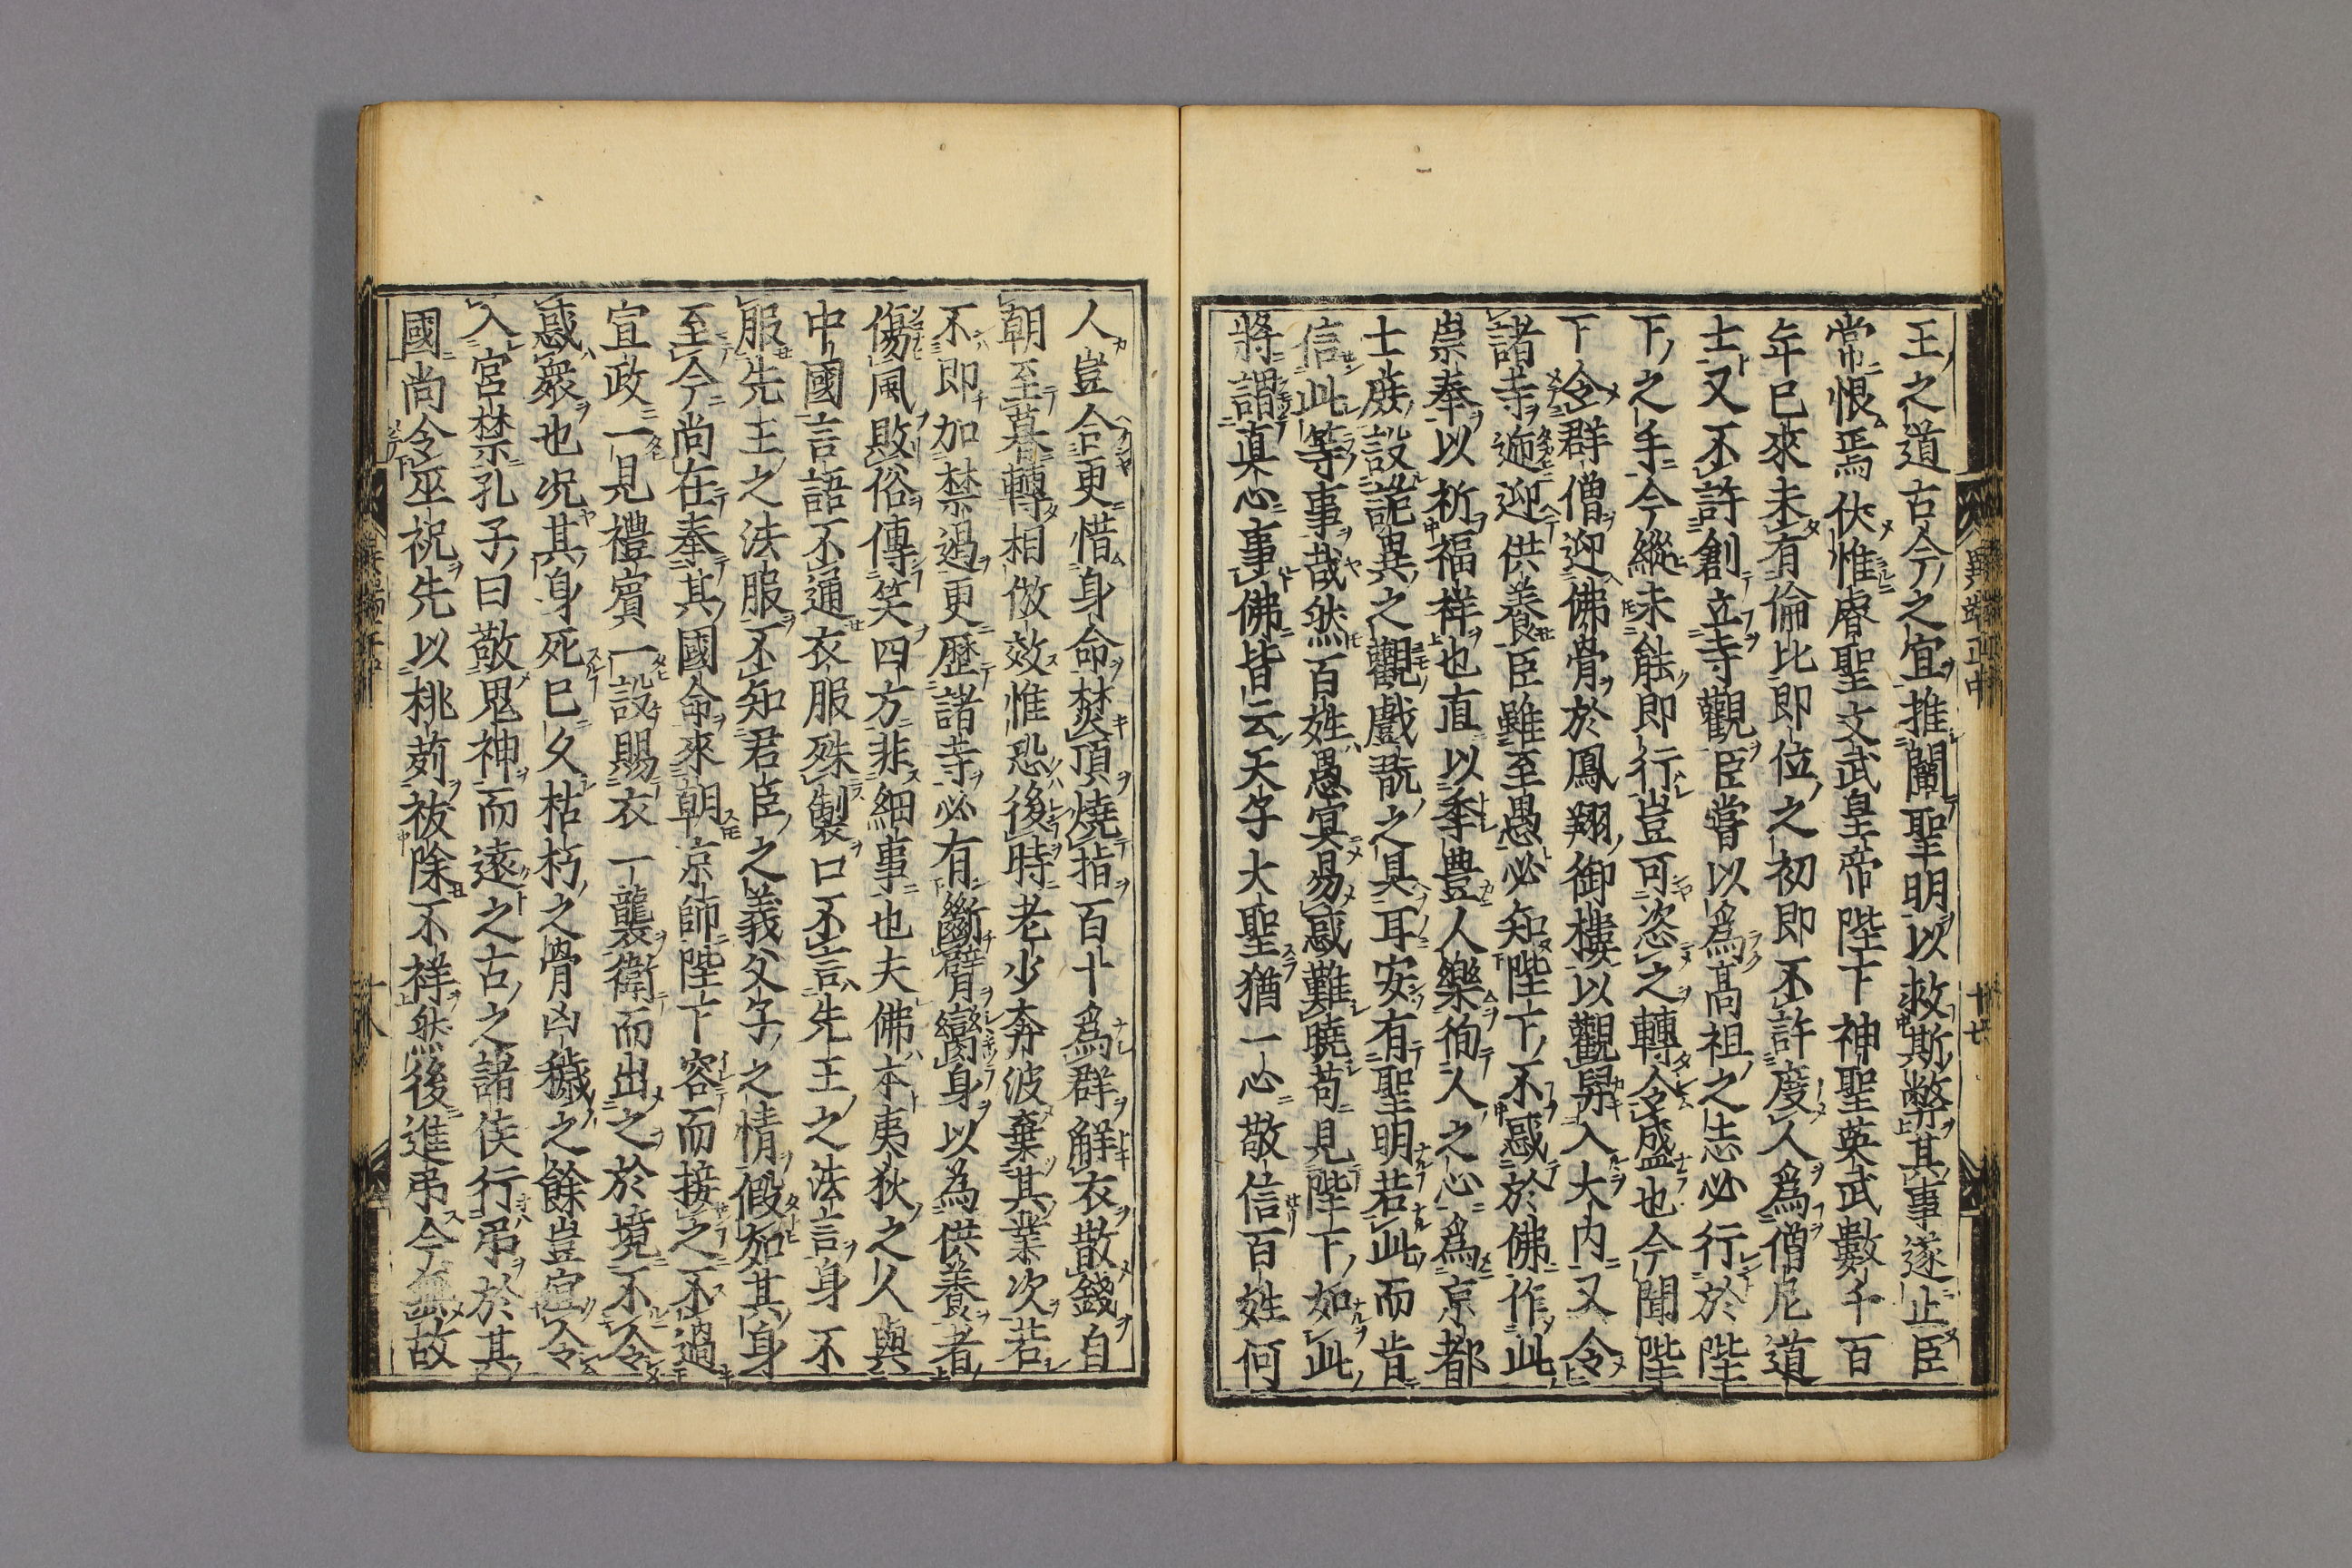 王之道古今之宜推闡聖明以救斯弊其事遂止臣
常恨焉伏惟睿聖文武皇帝陛下神聖英武數千百
年已來未有倫比即位之初即不許度人爲僧尼道
士又不許創立寺觀臣嘗以爲髙祖之志必行於陛
下之手今縱未能即行豈可恣之轉令盛也今聞陛
下令群僧迎佛骨於鳳翔御樓以觀舁入大内又令
諸寺遞迎供養臣雖至愚必知陛下不惑於佛作此
崇奉以祈福祥也直以季豊人樂徇人之心爲京都
士庻設詭異之觀戲翫之具耳安有聖明若此而肯
信此等事哉然百姓愚㝠易惑難曉苟見陛下如此
將謂真心事佛皆云天子大聖猶一心敬信百姓何
人豈合更惜身命焚頂燒指百十爲群解衣散錢自
朝至暮轉相倣效惟恐後時老少奔波棄其業次若
不即加禁遏更歴諸寺必有斷臂臠身以為供養者
傷風敗俗傳笑四方非細事也夫佛本夷狄之人與
中國言語不通衣服殊製口不言先王之法言身不
服先王之法服不知君臣之義父子之情假如其身
至今尚在奉其國命來朝京師陛下容而接之不過
宣政一見禮賓一設賜衣一襲衛而出之於境不令
惑衆也况其身死已久枯朽之骨凶穢之餘豈宜令
入宮禁孔子曰敬鬼神而遠之古之諸侯行弔於其
國尚令巫祝先以桃茢祓除不祥然後進弔今無故
異端正中
廿七